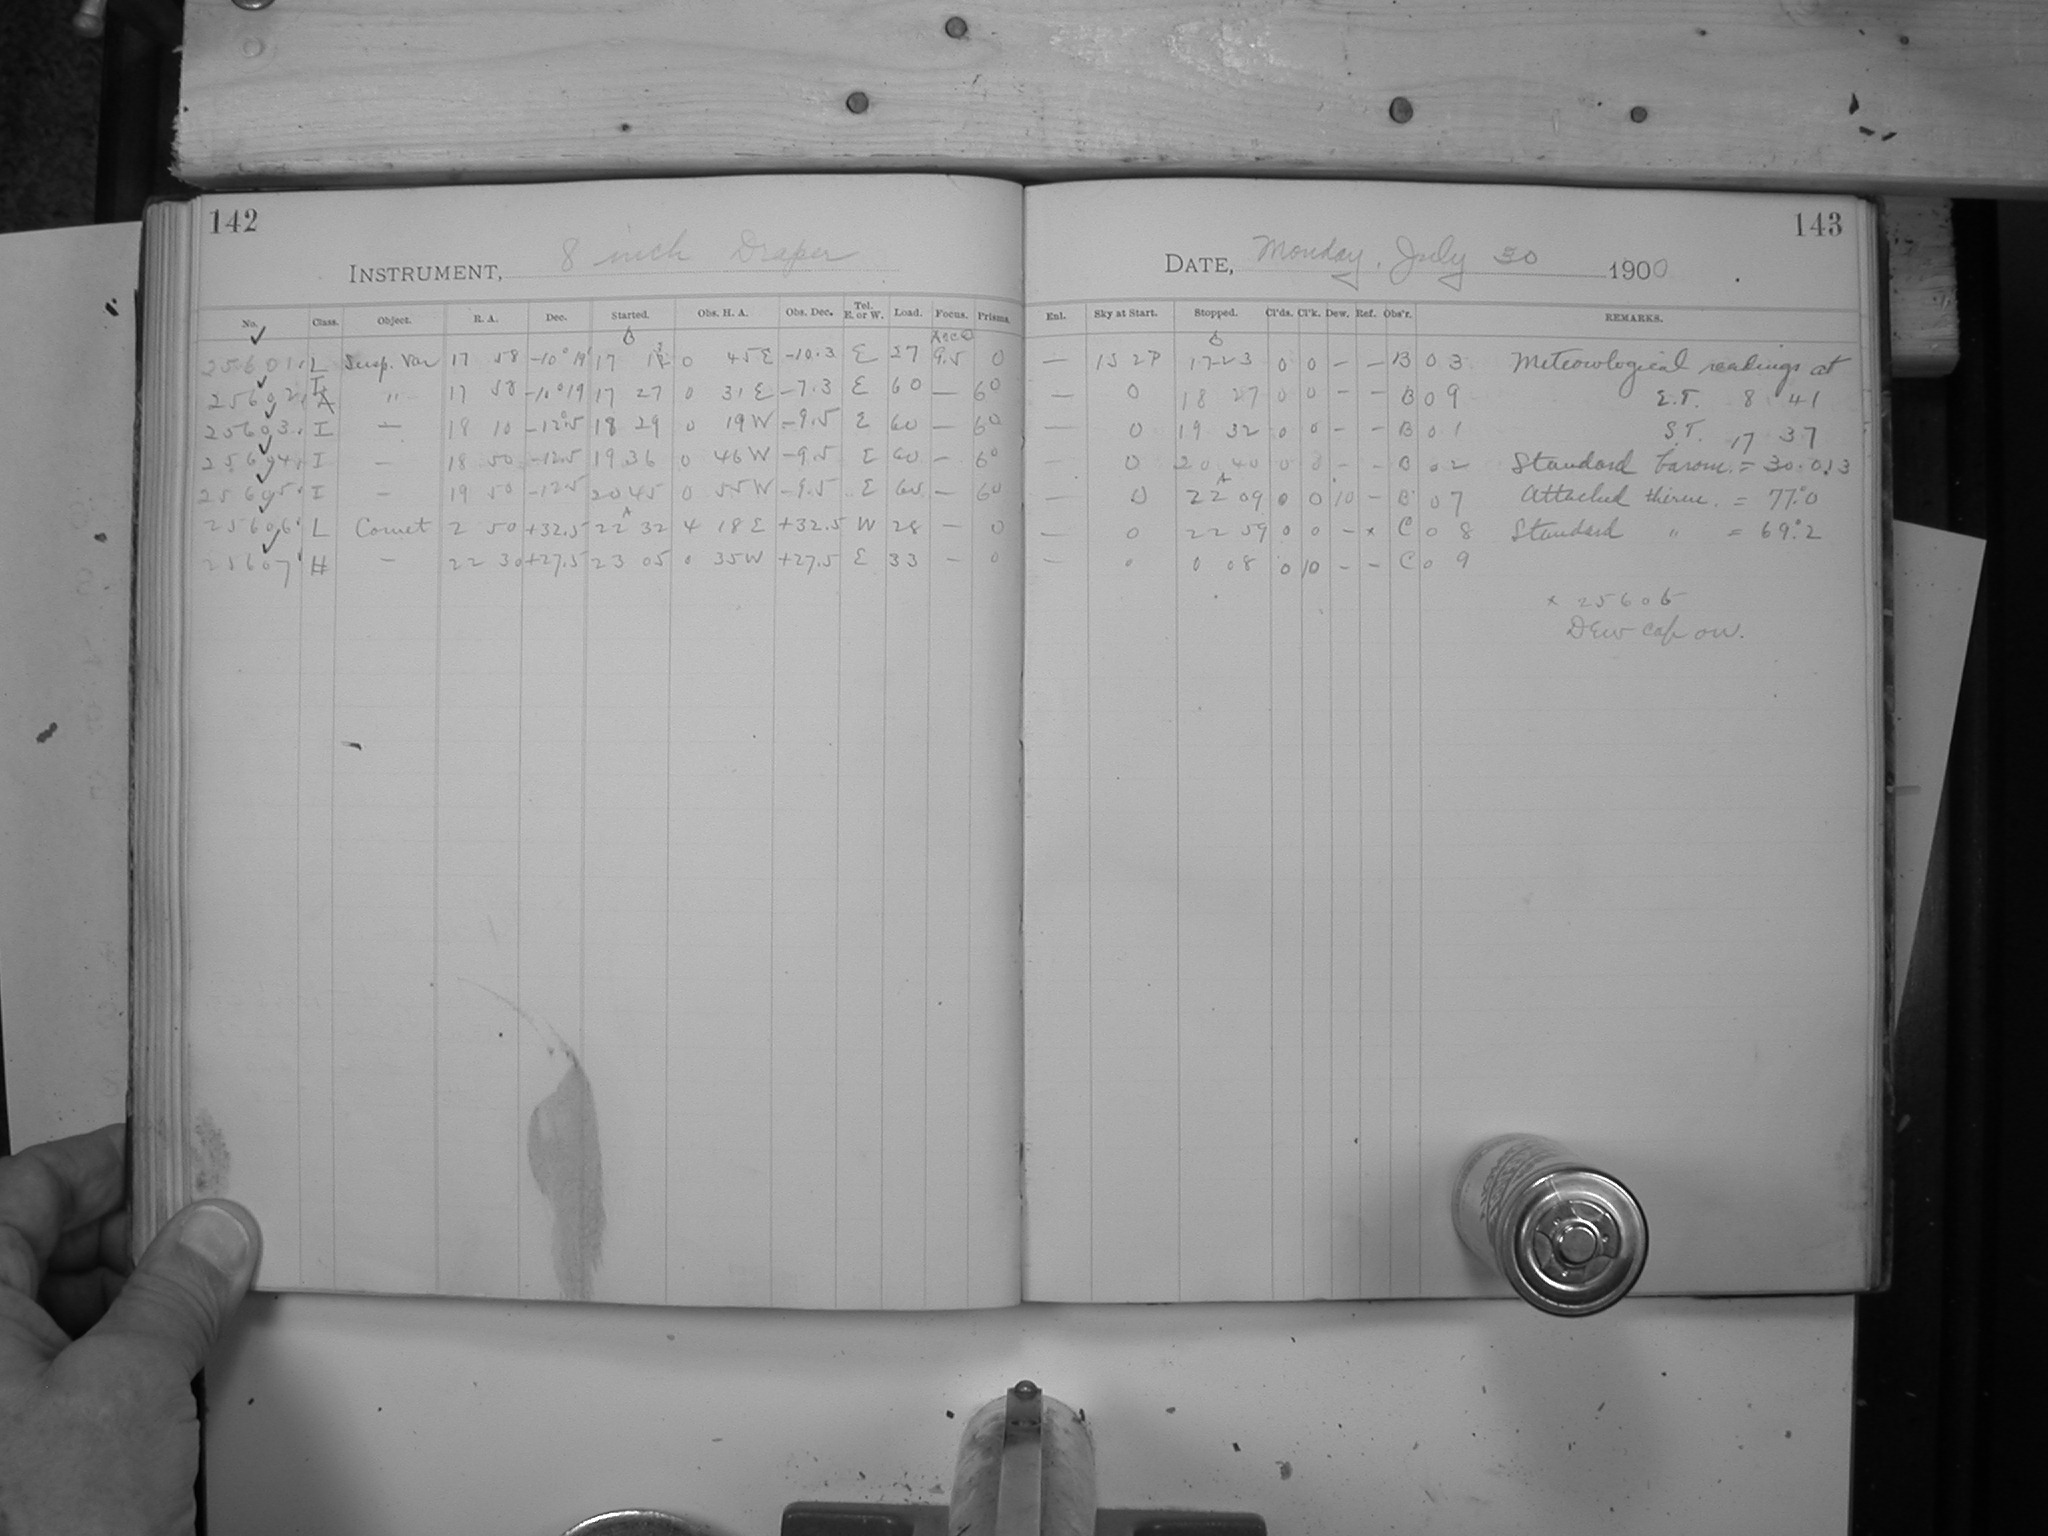 142
INSTRUMENT, 8 inch Draper
No. Class. Object. R. A. Dec. Started. Obs. H. A. Obs. Dec. Tel. E. or W. Load. Focus. Prisms.
25601. L Susp. Var 17 58 -10°19' 17 0 45 E -10.3 E 27 9.5 0
25602. I " 17 58 -10°19 17 27 0 31 E -7.3 E 60 — 60
25603. I — 18 10 -12.5 18 29 0 19 W -9.5 E 60 — 60
25604. I — 18 50 -12.5 19 36 0 46 W -9.5 E 60 — 60
25605. I — 19 50 -12.5 20 45 0 55 W -9.5 E 60 — 60
25606. L Comet 2 50 +32.5 22 32 4 18 E +32.5 W 28 — 0
25607. H — 22 30 +27.5 23 05 0 35 W +27.5 E 33 — 0
143
DATE, Monday, July 30 1900
Enl. Sky at Start. Stopped. Cl'ds. Cl'k. Dew. Ref. Obs'r. REMARKS.
— 15 27 17 23 0 0 — — B 03 Meteorological readings at
— 0 18 27 0 0 — — B 09 E.T. 8 41
— 0 19 32 0 0 — — B 01 S.T. 17 37
— 0 20 40 0 0 — — B 02 Standard barom. = 30.013
— 0 22 09 0 0 10 — B 07 Attached therm. = 77°.0
— 0 22 59 0 0 — x C 08 Standard " = 69°.2
— 0 0 08 0 10 — — C 09
x 25606
Dew cap on.